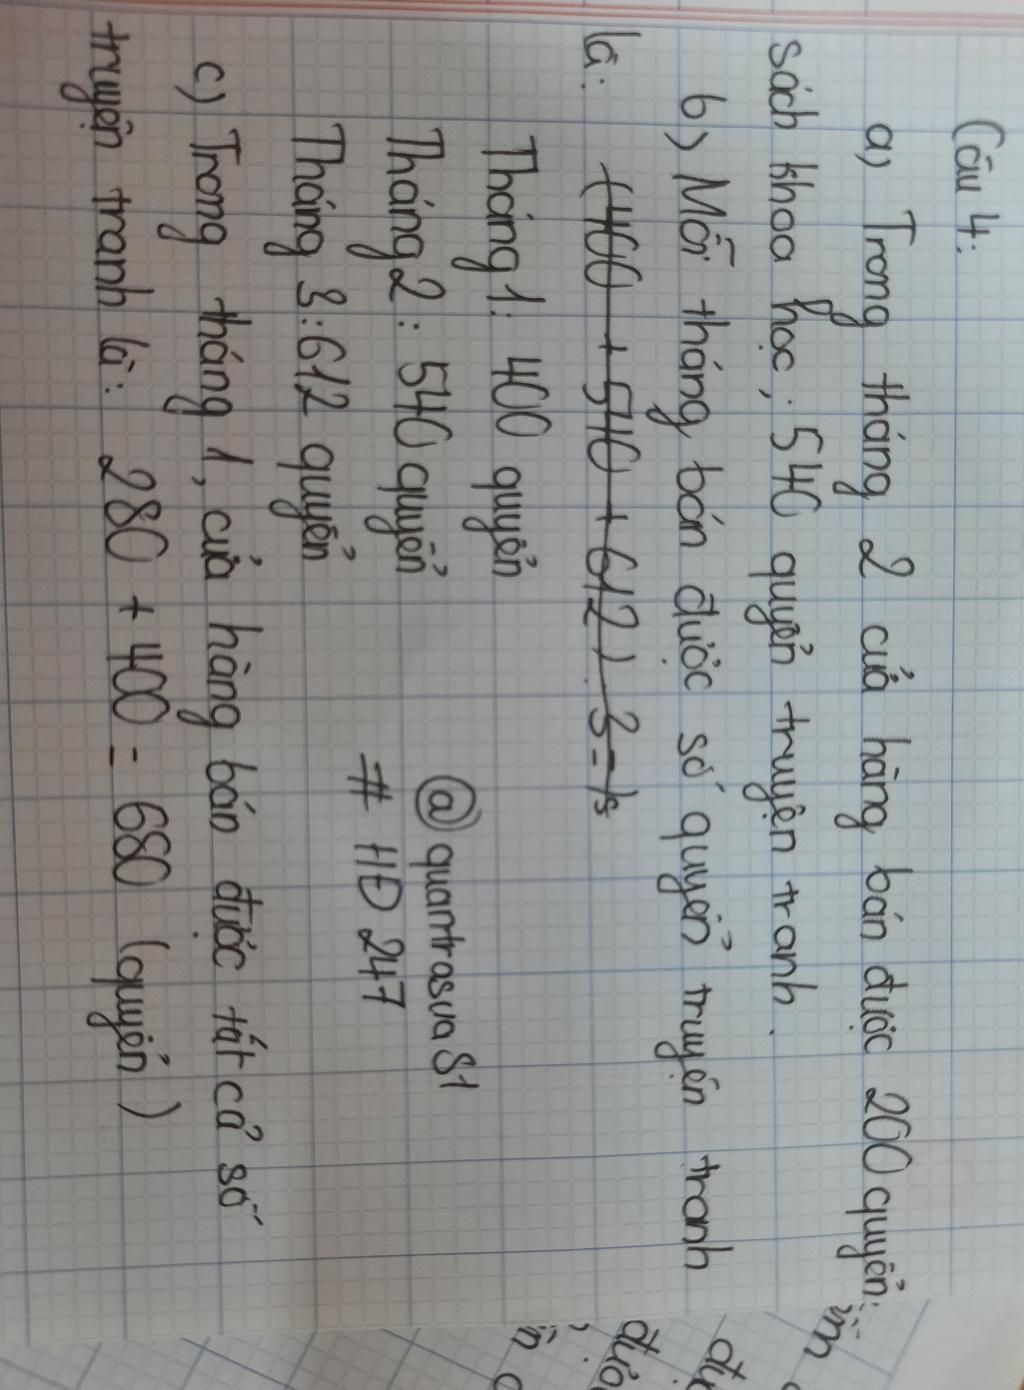 Câu 4:
a) Trong tháng 2 cửa hàng bán được 200 quyển
sách khoa học; 540 quyển truyện tranh.
b) Mỗi tháng bán được số quyển truyện tranh
là: (400 + 540 + 612) . 3 =
Tháng 1: 400 quyển
Tháng 2: 540 quyển
@quantrasua81
Tháng 3: 612 quyển
# HĐ 247
c) Trong tháng 1, cửa hàng bán được tất cả số
truyện tranh là: 280 + 400 = 680 (quyển)